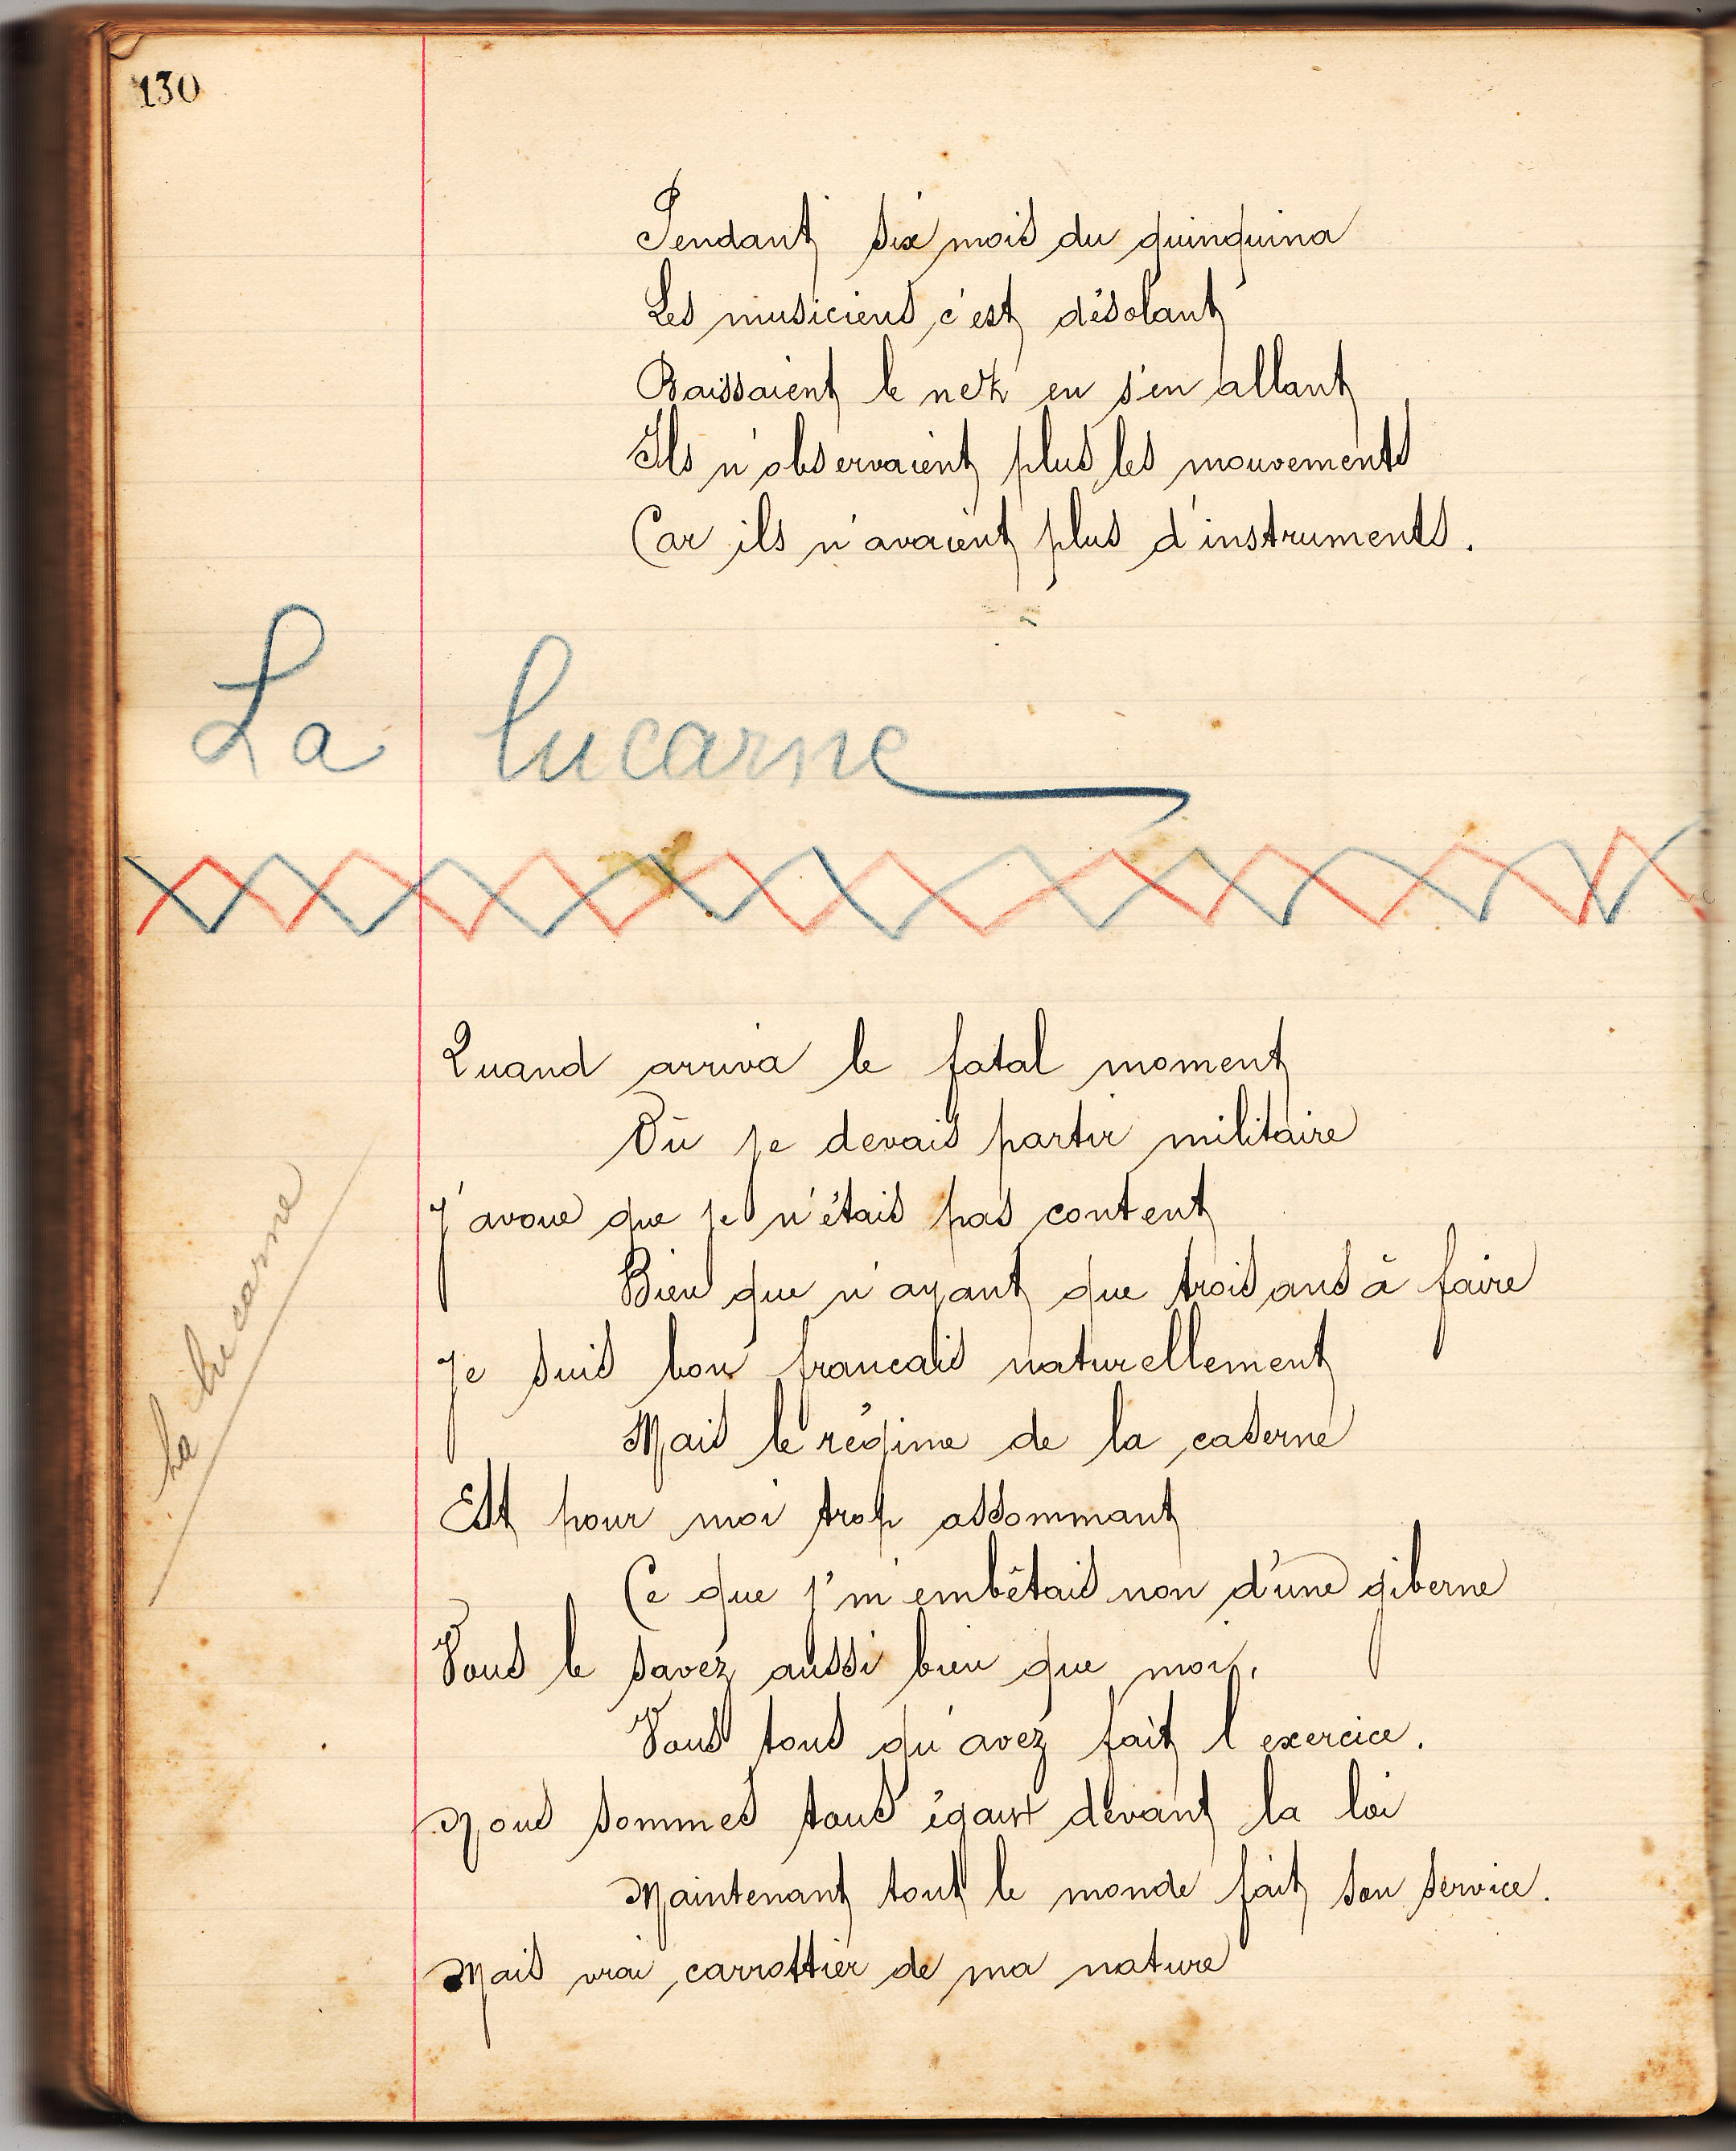 130
Pendant six mois du quinquina
Les musiciens c'est désolant
Baissaient le nez en s'en allant
Ils n'observaient plus les mouvements
Car ils n'avaient plus d'instruments.
La lucarne
Quand arriva le fatal moment
Où je devais partir militaire
J'avoue que je n'étais pas content
Bien que n'ayant que trois ans à faire
Je suis bon francais naturellement
Mais le régime de la caserne
Est pour moi trop assommant
Ce que j'm'embêtais non d'une giberne
Vous le savez aussi bien que moi,
Vous tous qu'avez fait l'exercice.
Nous sommes tous égaux devant la loi
Maintenant tout le monde fait son service.
Mais vrai carrottier de ma nature
La lucarne